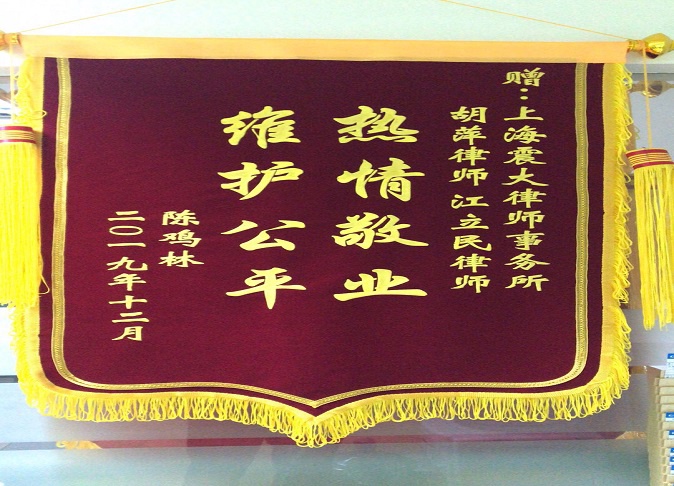 赠：上海震大律师事务所
胡萍律师江立民律师
热情敬业
维护公平
陈鸡林
二〇一九年十二月